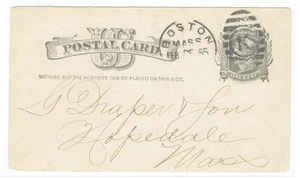 US
POSTAL CARD
NOTHING BUT THE ADDRESS CAN BE PLACED ON THIS SIDE.
BOSTON
MASS.
G Draper & Son
Hopedale
Mass